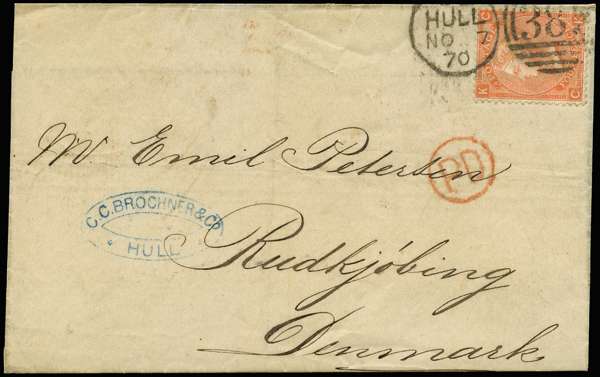 HULL
NO 7
70
383
C
K
K
C
Mr. Emil Petersen
PD
C.C. BROCHNER & Co
HULL
Rudkjöbing
Denmark